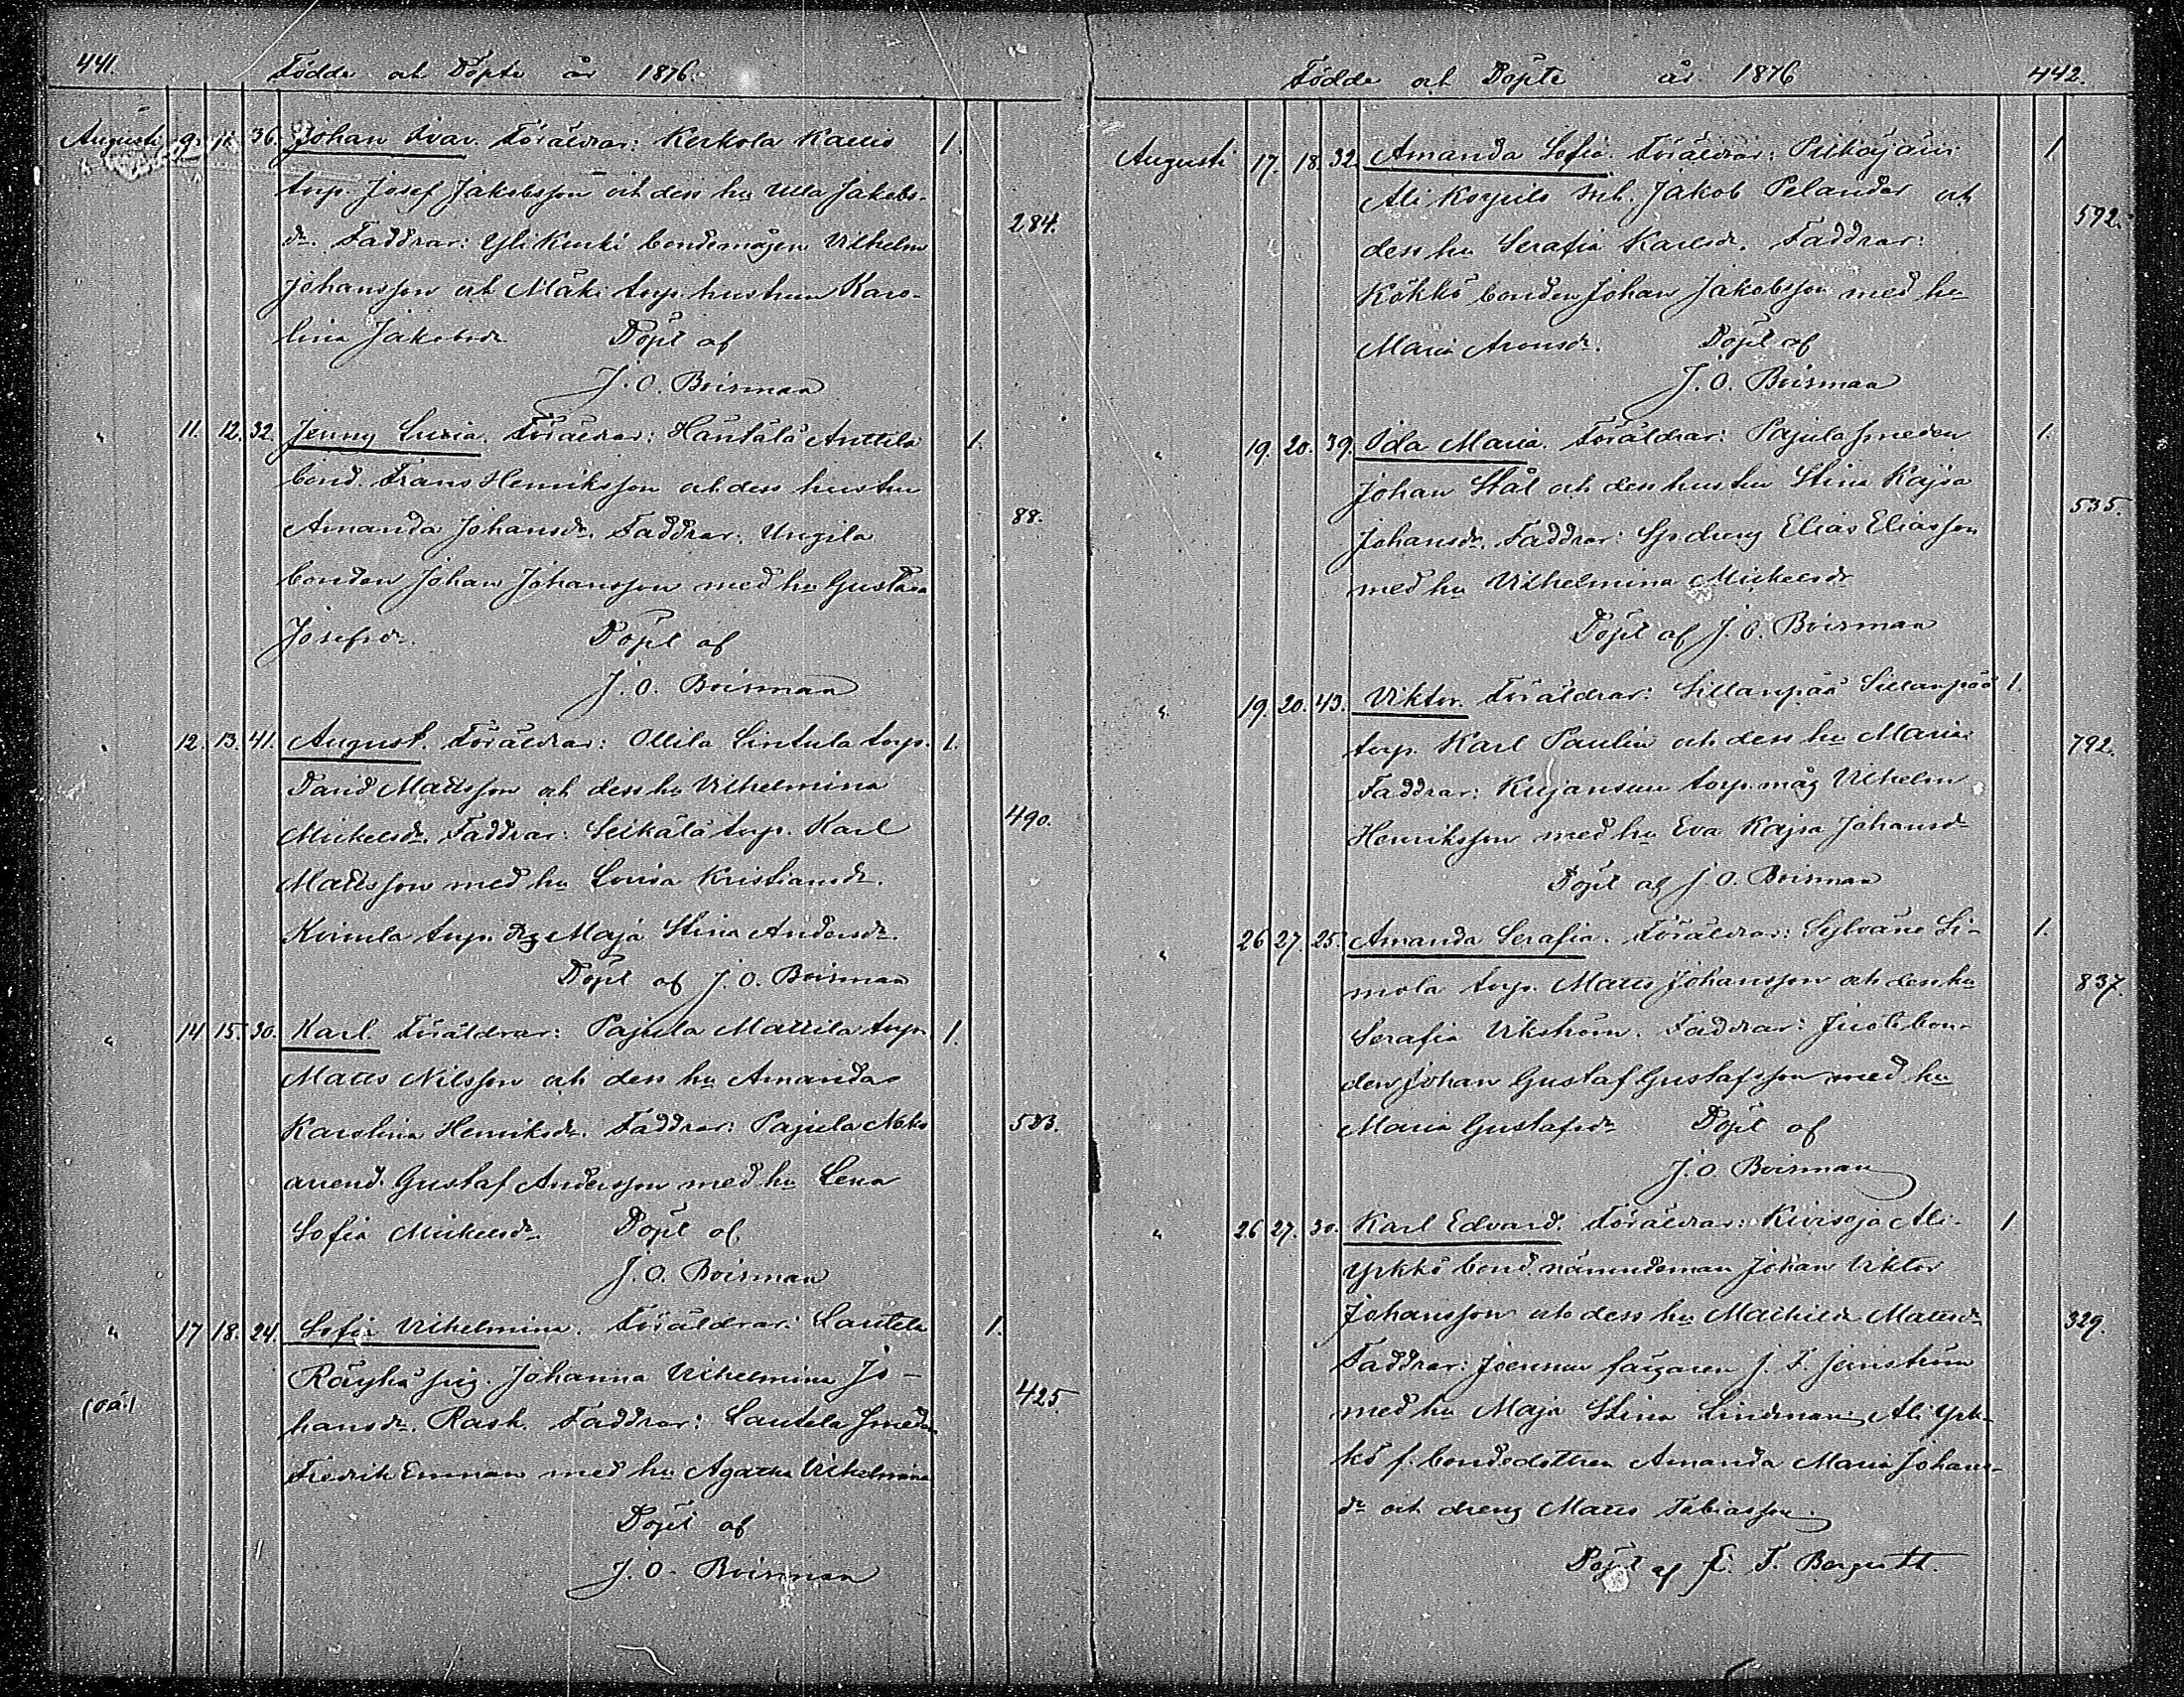 441. Födde och Döpte år 1876.
Augusti 9. 11. 36. Johan Ivar. Föräldrar: Kerkola Kallio 1.
torp. Josef Jakobsson och dess hu Ulla Jakobs-
dr. Faddrar: Yli Kurki bondemågen Vilhelm 284.
Johansson och Mäki torp. hustrun Karo-
lina Jakobsdr Döpt af
J. O. Boisman
" 11. 12. 32. Jenny Lusia. Föräldrar: Häntälä Anttila 1.
bond. Frans Henriksson och dess hustru
Amanda Johansdr. Faddrar: Uusgila 88.
bonden Johan Johansson med hu Gustava
Josefsdr. Döpt af
J. O. Boisman
" 12. 13. 41. August. Föräldrar: Ollila Lintula torp. 1.
David Mattsson och dess hu Vilhelmina
Mickelsdr. Faddrar: Seikälä torp. Karl 490.
Mattsson med hu Lovisa Kristiansdr.
torp. Maja Stina Andersdr.
Döpt af J. O. Boisman
" 14. 15. 30. Karl. Föräldrar: Pajula Mattila torp. 1.
Matts Nilsson och dess hu Amanda
Karolina Henriksdr. Faddrar: Pajula 533.
arend. Gustaf Andersson med hu Lena
Sofia Mickelsdr. Döpt af
J. O. Boisman
" 17. 18. 24. Sofia Vilhelmina. Föräldrar: Lautela 1.
Räyhä pig. Johanna Vilhelmina Jo-
(oä.) hansdr. Rask. Faddrar: Lautela smeden 425.
Fredrik Emman med hu Agatha Vilhelmina
Döpt af
J. O. Boisman
Födde och Döpte år 1876 442.
Augusti 17. 18. 32. Amanda Sofia. Föräldrar: 1
Ali inh. Jakob Pelander och 592.
dess hu Serafia Karlsdr. Faddrar:
Kökkö bonden Johan Jakobsson med hu
Maria Aronsdr. Döpt af
J. O. Boisman
" 19. 20. 39. Ida Maria. Föräldrar: Pajula smeden 1.
Johan Stål och dess hustru Stina Kajsa
Johansdr. Faddrar: dreng Elias Eliasson 535.
med hu Vilhelmina Mickelsdr
Döpt af J. O. Boisman
" 19. 20. 43. Viktor. Föräldrar: Sillanpää Sillanpää 1.
torp. Karl Paulin och dess hu Maria 792.
Faddrar: Kujansuu torp. måg Vilhelm
Henriksson med hu Eva Kajsa Johansdr
Döpt af J. O. Boisman
" 26 27. 25. Amanda Serafia. Föräldrar: Sylväne Si- 1.
mola torp. Matts Johansson och dess hu 837.
Serafia Vikström. Faddrar: bon-
den Johan Gustaf Gustafsson med hu
Maria Gustafsdr Döpt af
J. O. Boisman
" 26 27. 30. Karl Edvard. Föräldrar: Kivioja Ali- 1
Yrkkö bond. nämndeman Johan Viktor
Johansson och dess hu Mathilda Mattsdr 329.
Faddrar: färgaren J. F. Jernström
med hu Maja Stina Lindman, Ali Yrk-
kö f. bondedottren Amanda Maria Johans-
dr och dreng Matts Tobiasson.
Döpt af F. Bergroth.